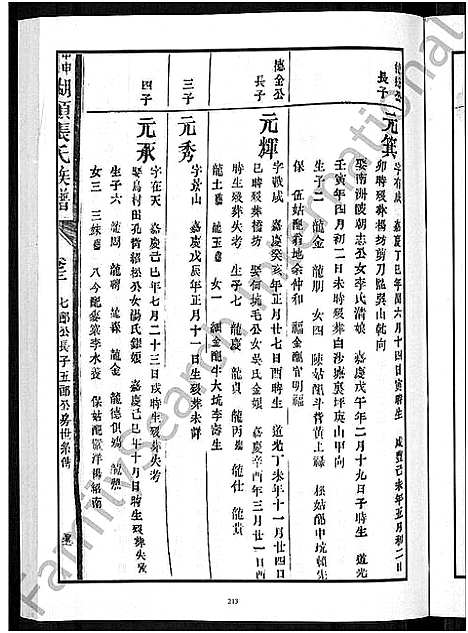 長子 元箕
字有成 嘉慶丁巳年閏六月十四日寅時生 咸豐己未年五月初二日
卯時歿葬楊坊剪刀隘巽山乾向
娶南洲陵朝志公女李氏清娘 嘉慶戊午年二月十九日子時生 道光
壬寅年四月初二日未時歿葬白沙塘裏坪艮山甲向
生子二 龍金 龍朋 女四 陳姑配斗宵黃上祿 招姑配中坑賴先
保 伍姑配翁地余仲和 福金配官明福
德金公
長子 元輝
字戰成 嘉慶癸亥年正月廿七日酉時生 道光丁未年十一月廿四日
巳時歿葬楊坊 娶何坑毛公女吳氏金娘 嘉慶辛酉年三月廿一日酉
時生歿葬失考 生子七 龍慶 龍貞 龍丙 龍仕 龍貴
龍土 龍玉 女一 細金配牛大坑李壽生
三子 元秀
字景山 嘉慶戊辰年正月十一日生歿葬未詳
四子 元承
字在天 嘉慶己巳年七月二十三日戌時生歿葬失考
娶烏村田孔鈴紹松公女湯氏銀娘 嘉慶己巳年十月日時生歿葬失考
生子六 龍周 龍 龍 龍金 龍德俱殤 龍
女三 三妹 八今配 李水養 保姑配嚴洋楊紹南
甲申 湖頭張氏族譜 卷三 七郎公長子五郎公房世系傳
213
FamilySearch International